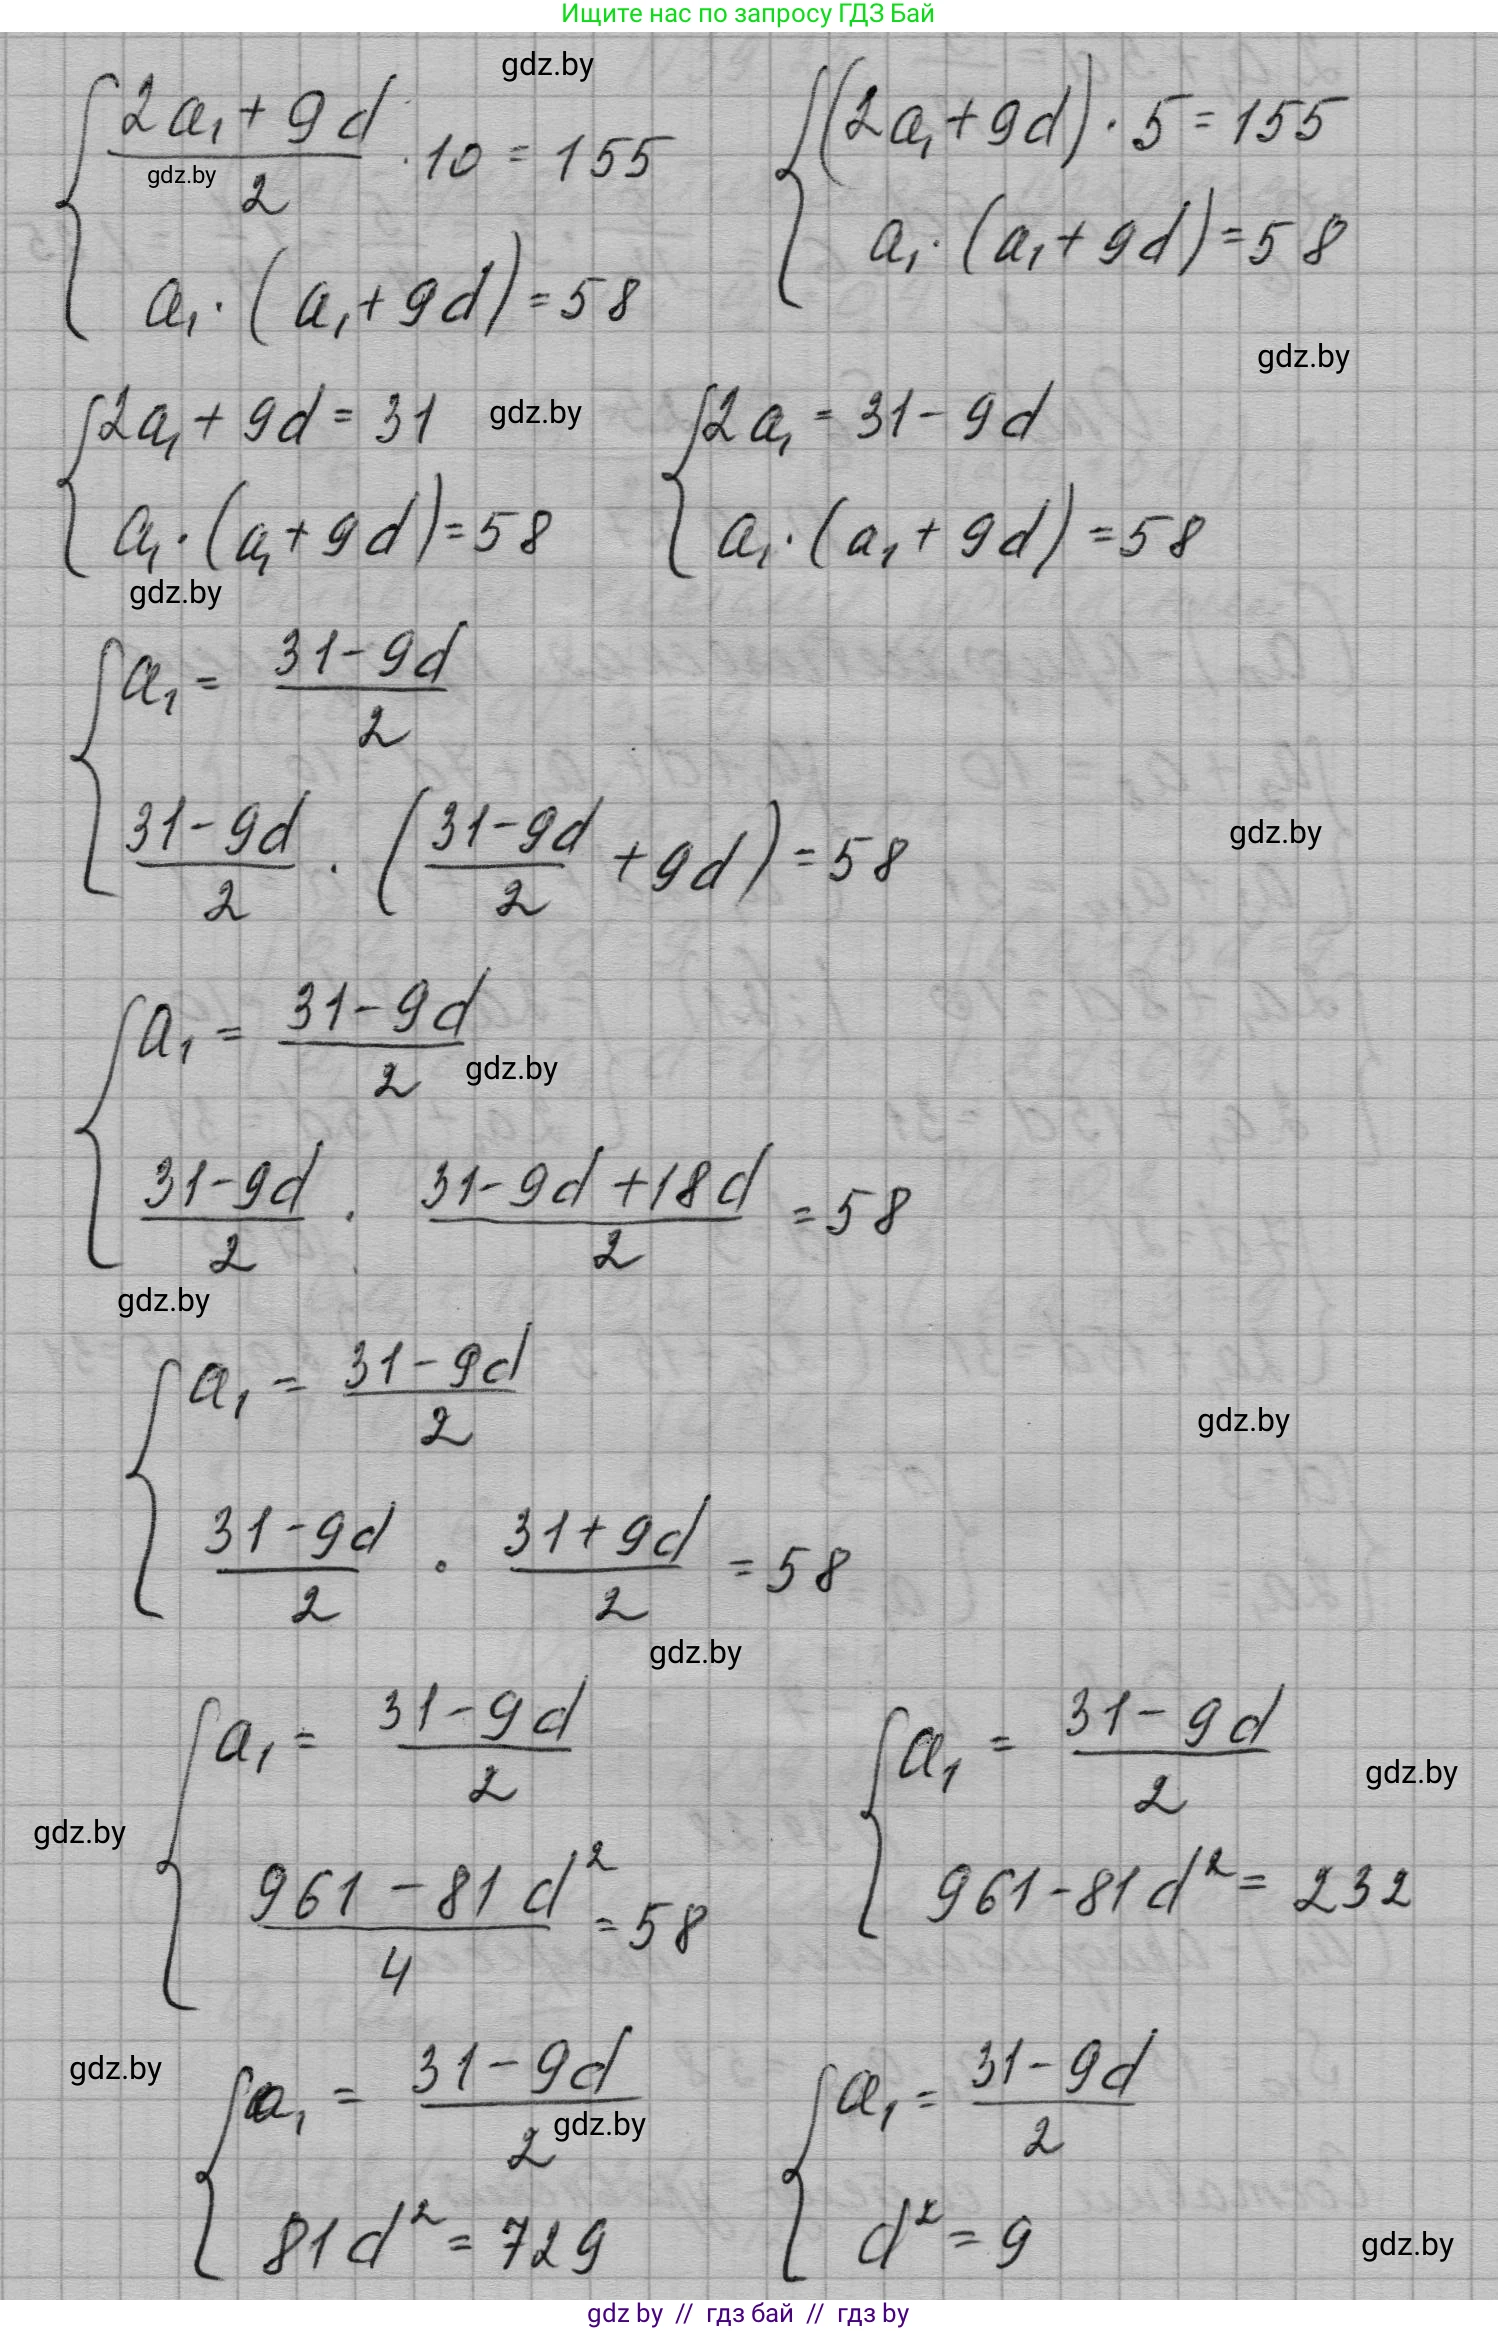 Ищите нас по запросу ГДЗ Бай
gdz.by
{ (2a₁ + 9d)/2 · 10 = 155
gdz.by
a₁ · (a₁ + 9d) = 58
{ (2a₁ + 9d) · 5 = 155
a₁ · (a₁ + 9d) = 58
gdz.by
{ 2a₁ + 9d = 31
a₁ · (a₁ + 9d) = 58
gdz.by
{ 2a₁ = 31 - 9d
a₁ · (a₁ + 9d) = 58
gdz.by
{ a₁ = (31 - 9d)/2
(31 - 9d)/2 · ((31 - 9d)/2 + 9d) = 58
gdz.by
{ a₁ = (31 - 9d)/2
gdz.by
(31 - 9d)/2 · (31 - 9d + 18d)/2 = 58
gdz.by
{ a₁ = (31 - 9d)/2
gdz.by
(31 - 9d)/2 · (31 + 9d)/2 = 58
gdz.by
{ a₁ = (31 - 9d)/2
(961 - 81d²)/4 = 58
gdz.by
{ a₁ = (31 - 9d)/2
961 - 81d² = 232
gdz.by
gdz.by
{ a₁ = (31 - 9d)/2
gdz.by
81d² = 729
{ a₁ = (31 - 9d)/2
d² = 9
gdz.by
gdz by // гдз бай // гдз by